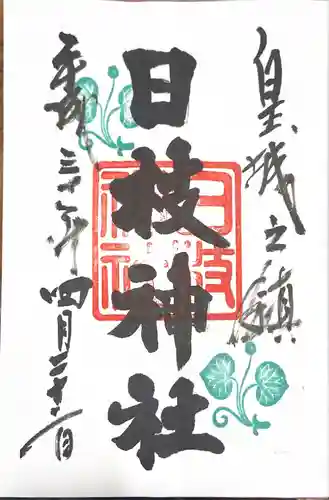 皇城之鎮
日枝神社
日枝神社
平成三十一年四月二十八日